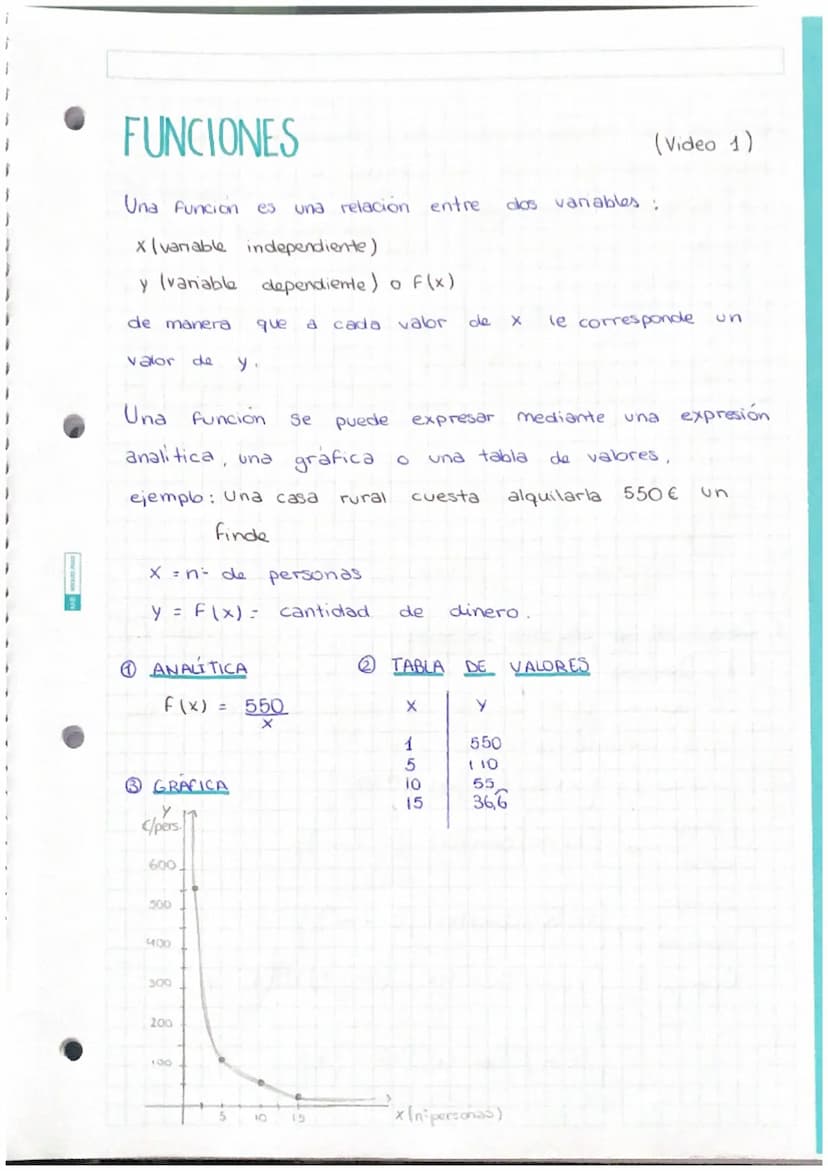 FUNCIONES
(Video 1)
Una función es una relación entre dos variables :
x (variable independiente)
y (variable dependiente) o F(x)
de manera que a cada valor de x le corresponde un
valor de y.
Una función se puede expresar mediante una expresión
analítica, una gráfica o una tabla de valores,
ejemplo: Una casa rural cuesta alquilarla 550€ un
finde
x = nº de personas
y = F(x) = cantidad de dinero.
① ANALÍTICA
F(x) = 550
x
② TABLA DE VALORES
x y
1 550
5 110
10 55
15 36,6
③ GRÁFICA
y
€/pers.
600
500
400
300
200
100
5 10 15
x (nº personas)